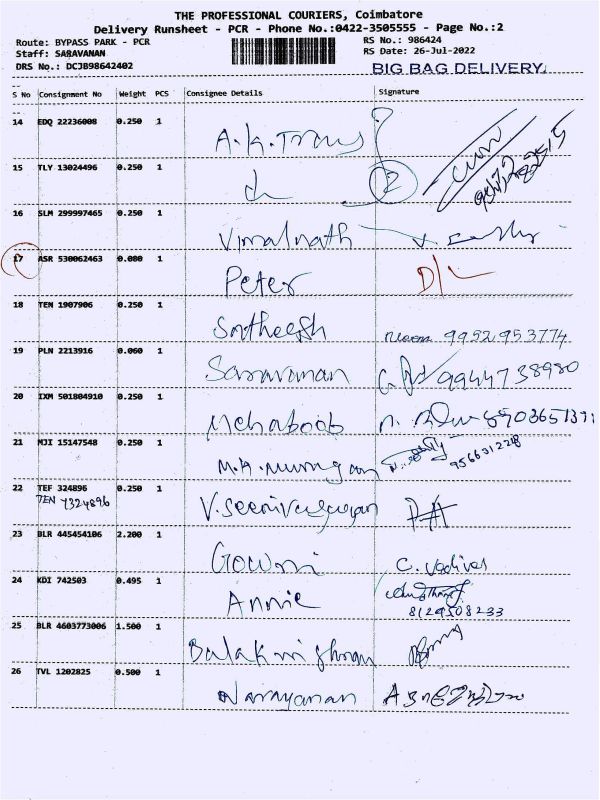 THE PROFESSIONAL COURIERS, Coimbatore
Delivery Runsheet - PCR - Phone No.:0422-3505555 - Page No.:2
Route: BYPASS PARK - PCR
RS No.: 986424
Staff: SARAVANAN
RS Date: 26-Jul-2022
DRS No.: DCJB98642402
BIG BAG DELIVERY.
S No Consignment No Weight PCS Consignee Details Signature
14 EDQ 22236008 0.250 1 A.K.Trans
15 TLY 13024496 0.250 1 2
16 SLM 299997465 0.250 1 Vimalnath
17 ASR 530062463 0.080 1 Peter D/L
18 TEN 1907906 0.250 1 Satheesh 9952953774
19 PLN 2213916 0.060 1 Saravanan 9944738980
20 IXM 501804910 0.250 1 Mehaboob
21 MJI 15147548 0.250 1 M.A.Murugan
22 TEF 324896 0.250 1
TEN 7324896
23 BLR 445454106 2.200 1 Gowri C. Vadivel
24 KDI 742503 0.495 1 Annie
8129508233
25 BLR 4603773006 1.500 1 Balakrishnan
26 TVL 1202825 0.500 1 Narayanan